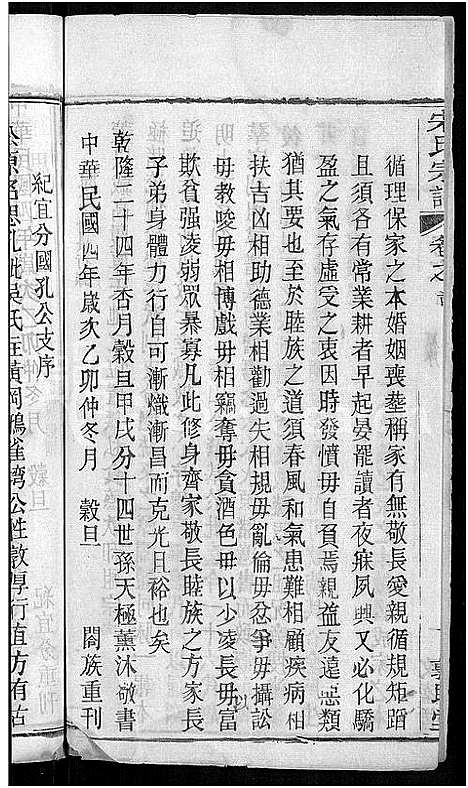 宋氏宗譜
卷之首
循理保家之本婚姻喪塟稱家有無敬長愛親循規矩蹈
且須各有常業耕者早起晏罷讀者夜寐夙興又化驕
盈之氣存虛受之衷因時發憤毋自貢焉親益友遠惡類
猶其要也至於睦族之道須春風和氣患難相顧疾病相
扶吉凶相助德業相勸過失相規毋亂倫毋忿爭毋攝訟
毋教唆毋相博戲毋相竊奪毋貪酒色毋以少凌長毋富
欺貧强凌弱眾暴寡凡此修身齊家敬長睦族之方家長以
子弟身體力行自可漸熾漸昌而克光且裕也矣
乾隆二十四年杏月穀旦甲戌分十四世孫天極薰沐敬書
中華民國四年歲次乙卯仲冬月 穀旦 閤族重刊
紀宜分國孔公支序
氏在黃岡鴉雀灣公性敦厚行直方有古